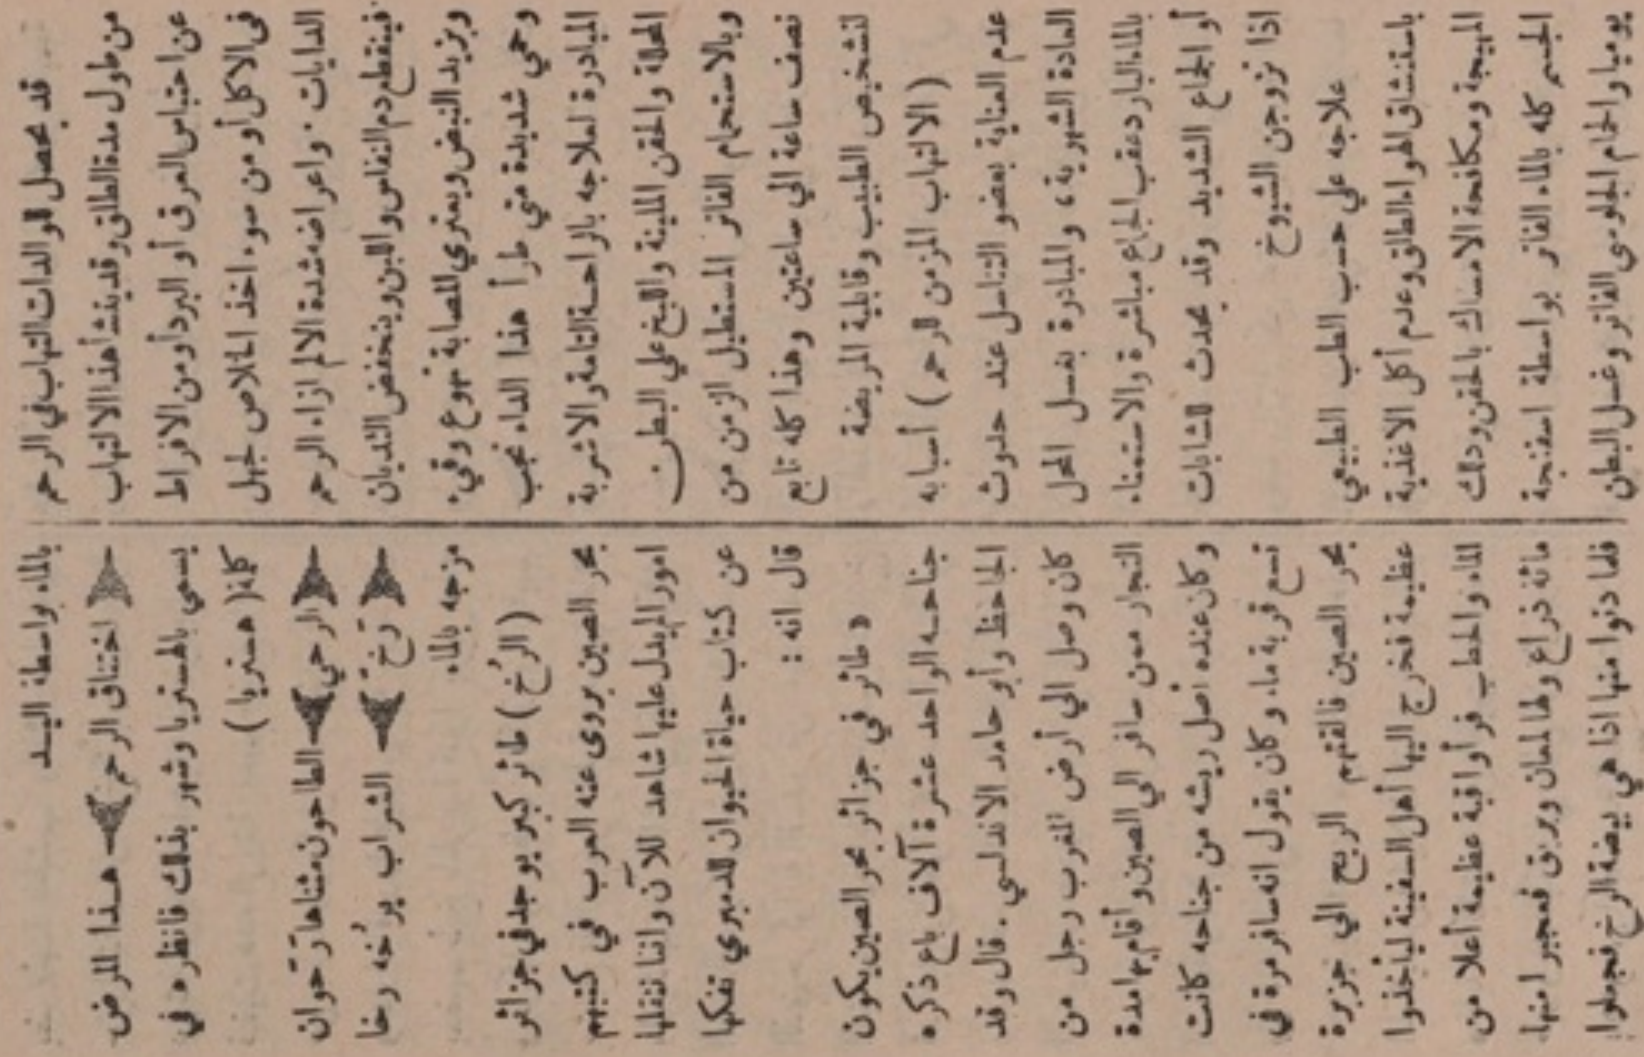 قد يحصل للوالدات التهاب في الرحم
من طول مدة الطلق وقد ينشأ هذا الالتهاب
عن احتباس العرق أو البرد أو من الافراط
في الاكل أو من سوء اخذ الخلاص لجهل
الدايات . واعراضه شدة الالم ازاء الرحم
فينقطع دم النفاس واللبن وينخفض الثديان
ويزيد النبض ويعتري المصابة تهوع وقيء
وحمي شديدة متي طرأ هذا الداء تجب
المبادرة لعلاجه بالراحة التامة والاشربة
المحلاة والحقن الملينة واللبخ علي البطن
وبالاستحمام الفاتر المستطيل الزمن من
نصف ساعة الي ساعتين وهذا كله تابع
لتشخيص الطبيب وقابلية المريضة
( الالتهاب المزمن للرحم ) أسبابه
عدم العناية بعضو التناسل عند حدوث
العادة الشهرية ، والمبادرة بغسل المحل
بالماء البارد عقب الجماع مباشرة والاستمناء
أو الجماع الشديد وقد يحدث للشابات
اذا تزوجن الشيوخ
علاجه علي حسب الطب الطبيعي
باستنشاق الهواء الطلق وعدم أكل الاغذية
المهيجة ومكافحة الامساك بالحقن ودلك
الجسم كله بالماء الفاتر بواسطة اسفنجة
يوميا والحمام الجلوسي الفاتر وغسل البطن
بالماء بواسطة اليد
﴿ اختناق الرحم ﴾ هذا المرض
يسمي بالهستريا وشهر بذلك فانظره في
كلمة ( هستريا )
﴿ الرحي ﴾ الطاحون مثناها رَحَوان
﴿ رَخّ ﴾ الشراب يرُخه رخا
مزجه بالماء
( الرُخ ) طائر كبير يوجد في جزائر
بحر الصين يروى عنه العرب في كتبهم
امورا لم يدل عليها شاهد للآن واننا ننقلها
عن كتاب حياة الحيوان للدميري تفكها
قال انه :
« طائر في جزائر بحر الصين يكون
جناحه الواحد عشرة آلاف باع ذكره
الجاحظ وأبو حامد الاندلسي . قال وقد
كان وصل الي أرض المغرب رجل من
التجار ممن سافر الي الصين وأقام بها مدة
وكان عنده أصل ريشه من جناحه كانت
تسع قربة ماء وكان يقول انه سافر مرة في
بحر الصين فالقتهم الريح الي جزيرة
عظيمة فخرج اليها أهل السفينة ليأخذوا
الماء والحطب فرأوا قبة عظيمة أعلا من
مائة ذراع ولها لمعان وبريق فعجبوا منها
فلما دنوا منها اذا هي بيضة الرخ فجعلوا